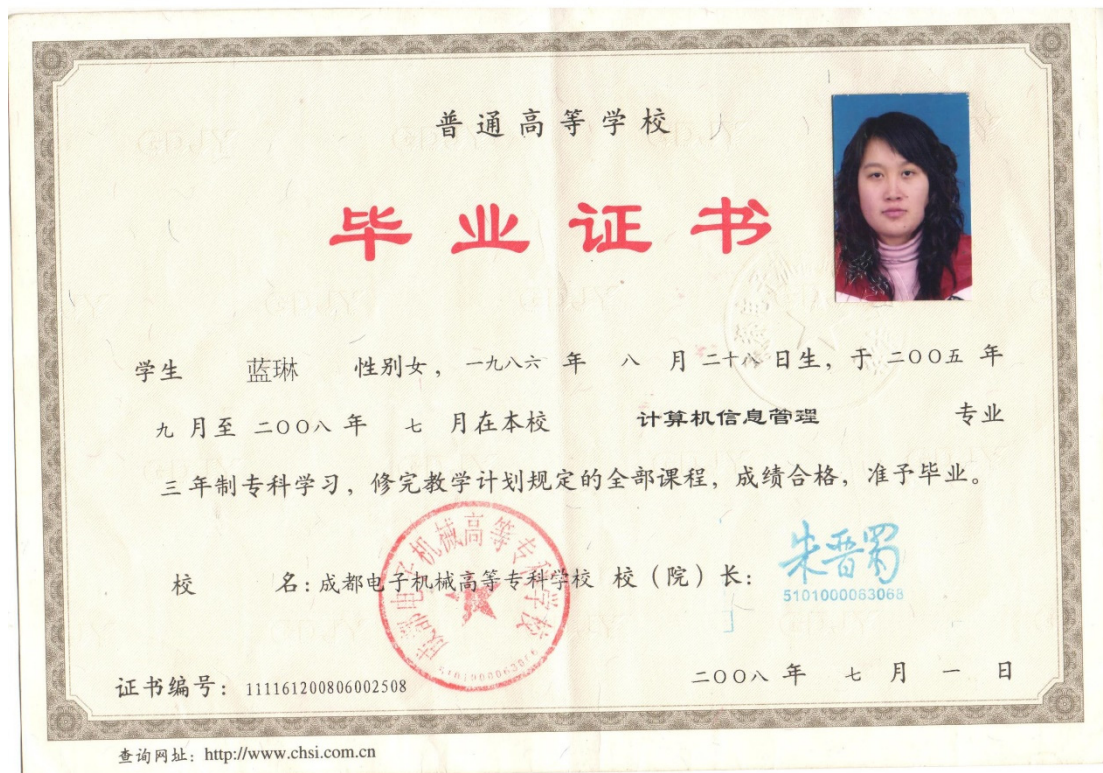 普通高等学校
毕业证书
学生 蓝琳 性别女，一九八六 年 八 月 二十八 日生，于 二〇〇五 年
九 月至 二〇〇八 年 七 月在本校 计算机信息管理 专业
三 年制专科学习，修完教学计划规定的全部课程，成绩合格，准予毕业。
成都电子机械高等专科学校
校 名：成都电子机械高等专科学校 校（院）长：
朱晋蜀
5101000063068
证书编号：111161200806002508 二〇〇八 年 七 月 一 日
查询网址：http://www.chsi.com.cn